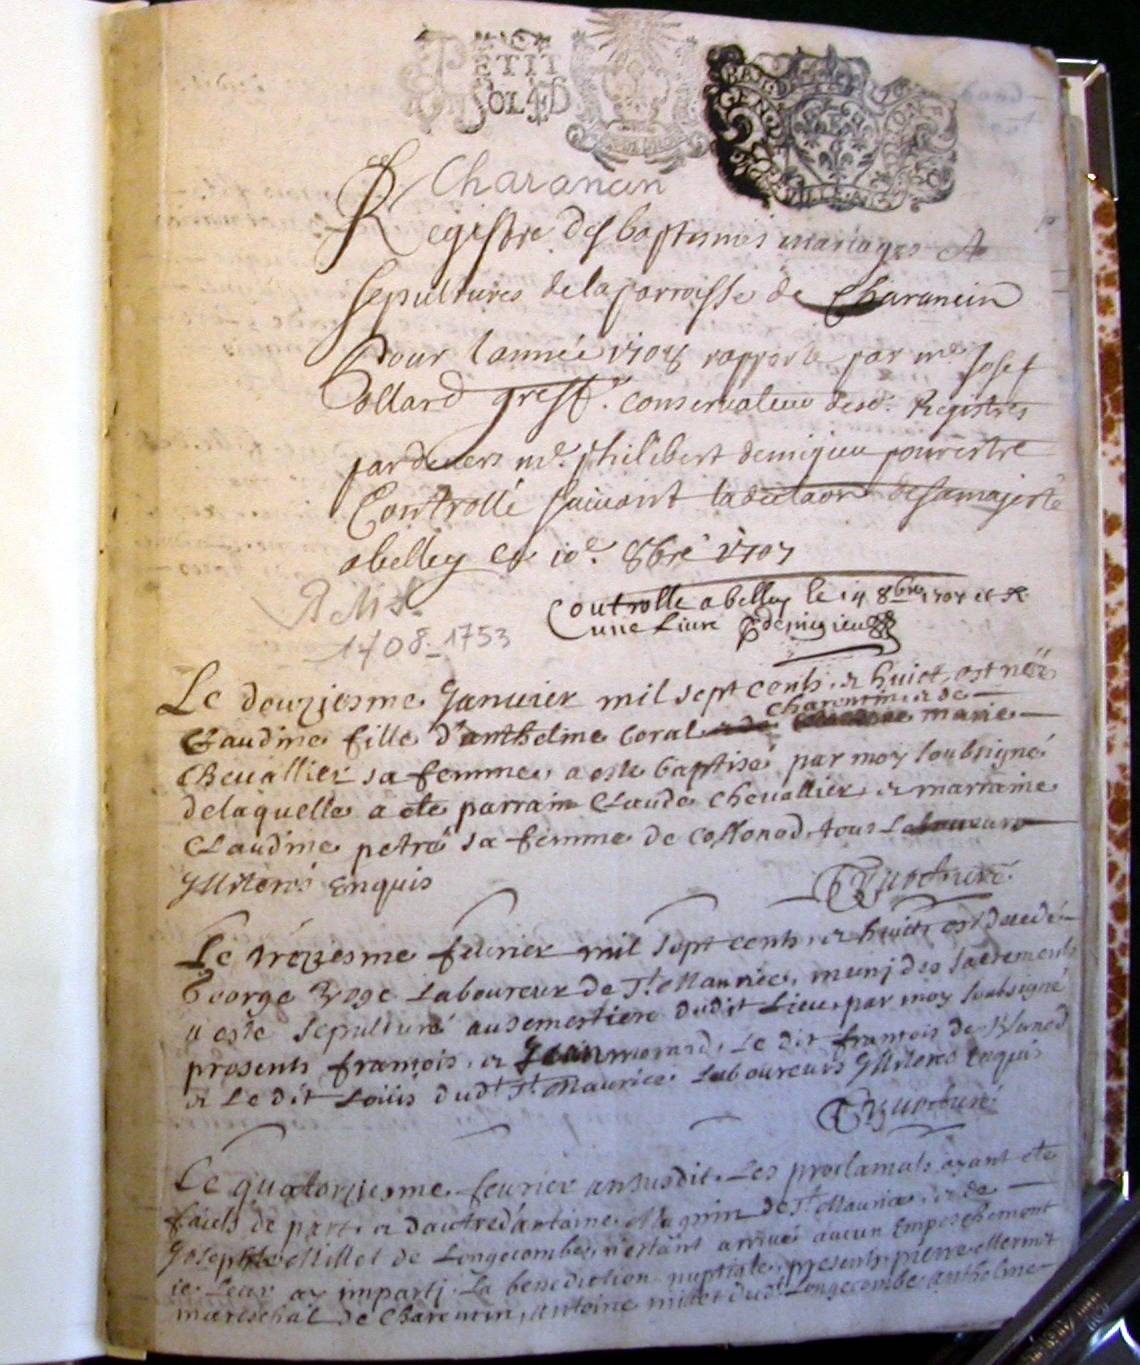 PETIT
SOL 4 D
GEN DE
Charancin
Registre des baptesmes mariages et
sepultures de la parroisse de Charancin
Pour l'année 1708 rapporté par me Josef
Collard greff. conservateur desd. Registres
pardevers me. philibert demigieu pour estre
Controllé suivant la declaon de sa majesté
a belley ce 10e. 8bre 1707
Controlle a belley le 14 8bre 1707 et R
une Livre demigieu
1708-1753
Le douziesme Janvier mil sept cents et huict est née
Claudine fille d'anthelme Coral Charentin et de marie
Chevallier sa femme, a este baptisé par moy soubsigné
de laquelle a ete parrain Claude Chevallier et marraine
Claudine petré sa femme de collonod, tous Laboureurs
Illiterés Enquis
Le trèziesme fevrier mil sept cents et huict est decedé
George Roge Laboureur de St. Maurice, muni des sacrements
a este sepulturé au semestiere dudit Lieu par moy soubsigné
presents françois et morard, Le dit françois de
et Le dit Loüis dudt St. Maurice Laboureurs Illiteres Enquis
Le quatorziesme fevrier an susdit Les proclamats ayant ete
faicts de part et d'autre d'antoine Maguin de St. Maurice et de
Josephte Millet de Longecombe, n'estant arrivé aucun Empeschement
ie Leur ay imparti La benediction nuptiale, presents pierre
mareschal de Charentin, Antoine millet dudt. Longecombe anthelme